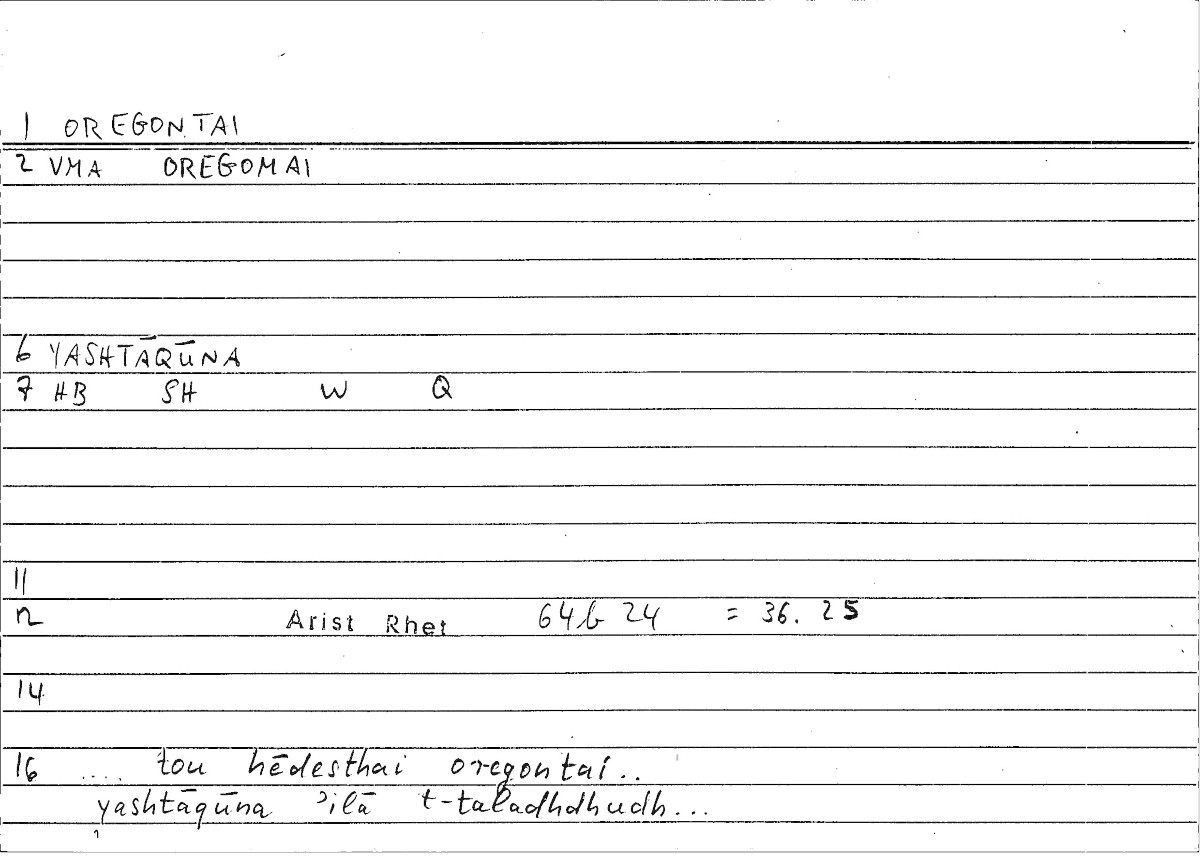 1 OREGONTAI
2 VMA OREGOMAI
6 YASHTĀQŪNA
7 HB SH W Q
11
12 Arist Rhet 64b 24 = 36. 25
14
16 .... tou hēdesthai oregontai..
yashtāqūna ʾilā t-taladhdhudh...